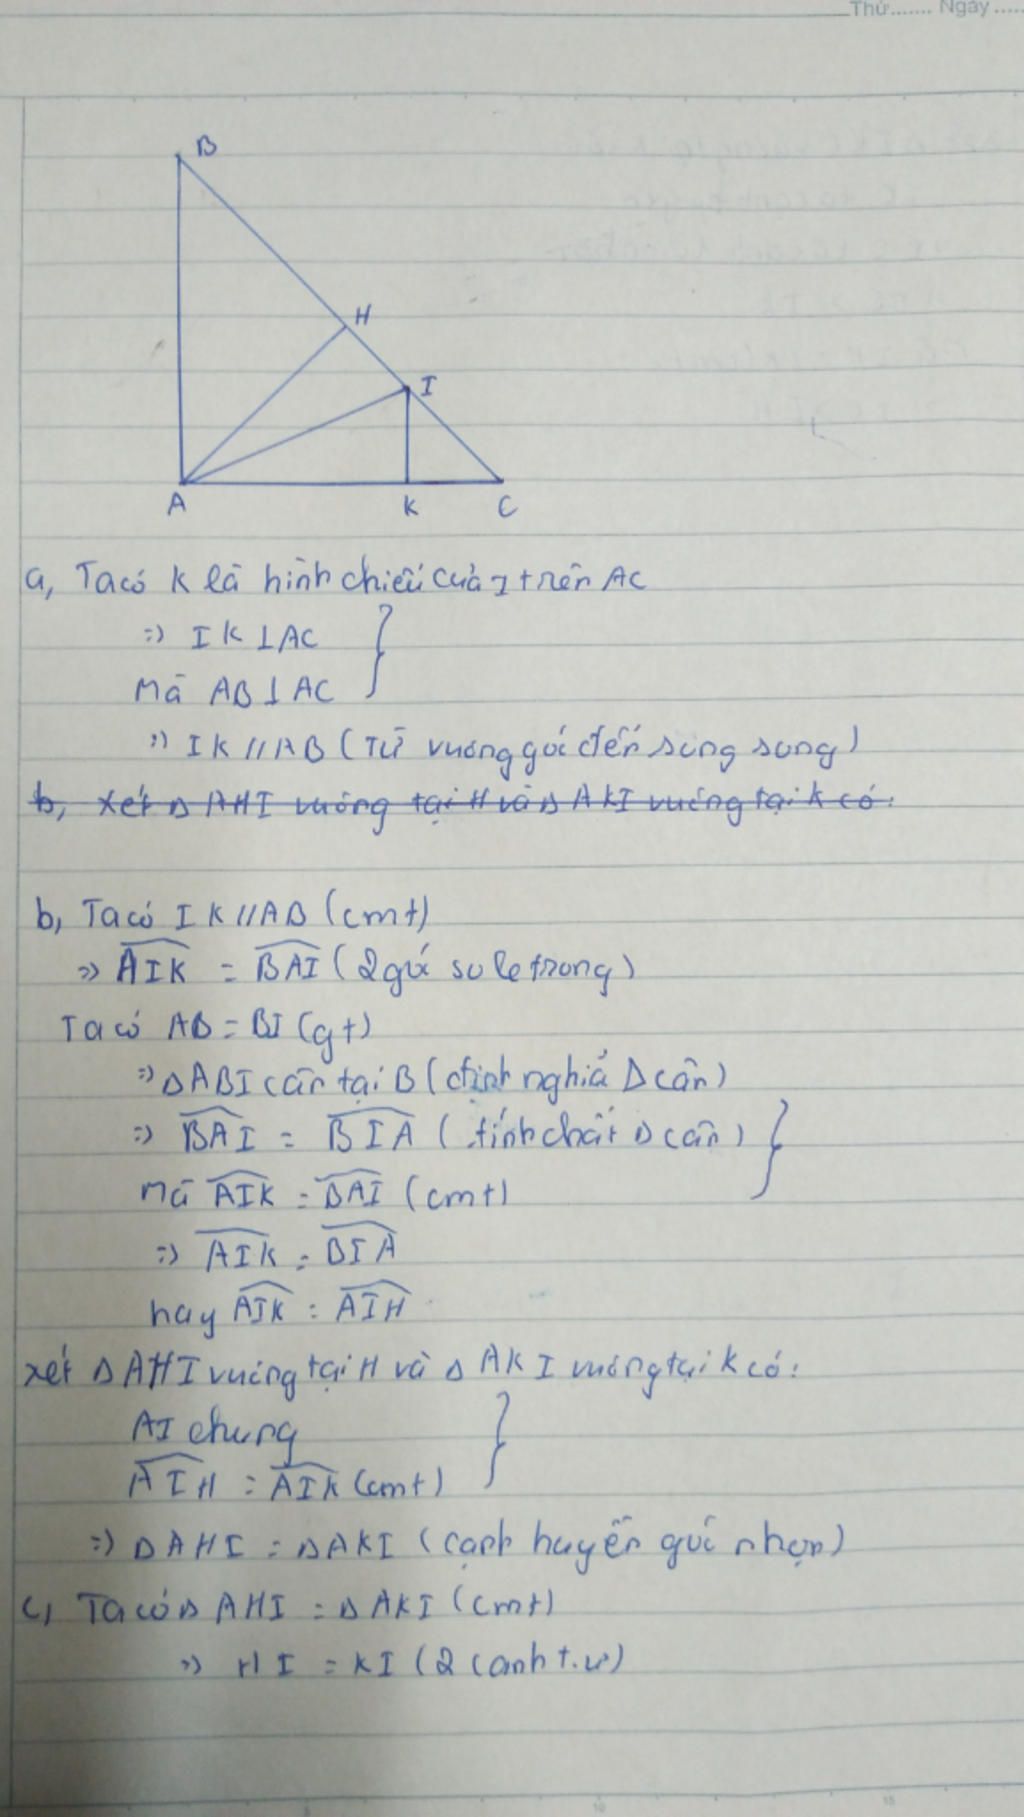 Thứ....... Ngày.....
B
H
I
A K C
a, Ta có K là hình chiếu của I trên AC
=> IK ⊥ AC
Mà AB ⊥ AC
=> IK // AB (Từ vuông góc đến song song)
b, Xét Δ AHI vuông tại H và Δ AKI vuông tại K có:
b, Ta có IK // AB (cmt)
=> AIK = BAI (2 góc so le trong)
Ta có AB = BI (gt)
=> Δ ABI cân tại B (định nghĩa Δ cân)
=> BAI = BIA (tính chất Δ cân)
mà AIK = BAI (cmt)
=> AIK = BIA
hay AIK = AIH
xét Δ AHI vuông tại H và Δ AKI vuông tại K có:
AI chung
AIH = AIK (cmt)
=> Δ AHI = Δ AKI (cạnh huyền góc nhọn)
c, Ta có Δ AHI = Δ AKI (cmt)
=> HI = KI (2 cạnh t.ư)